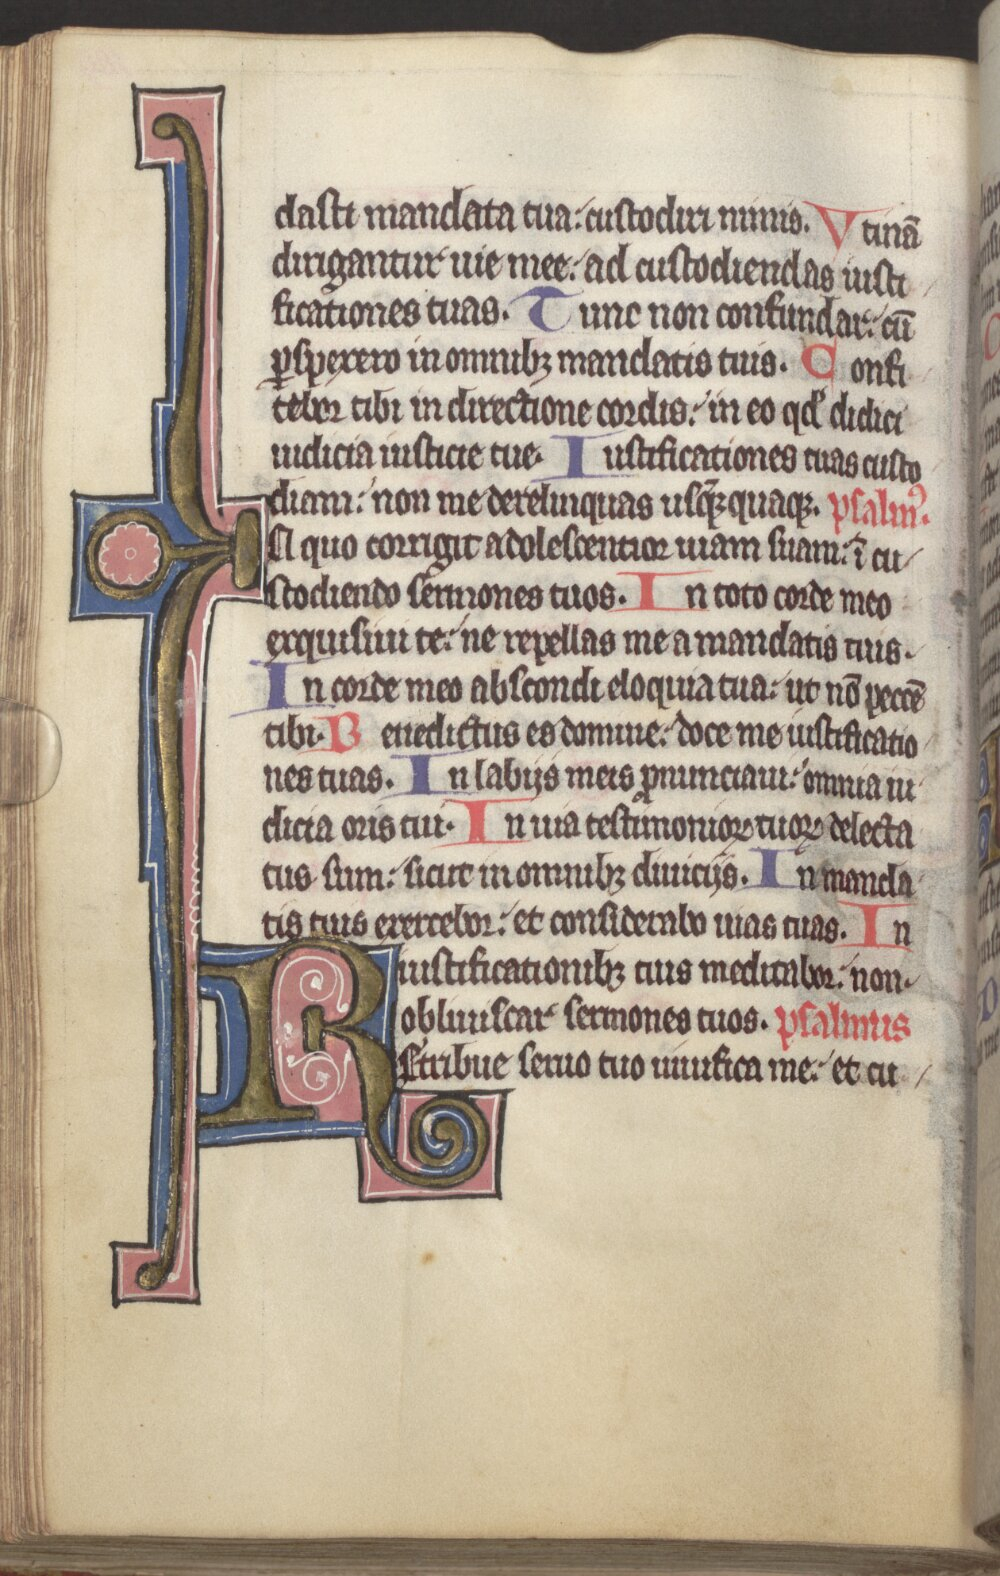 dasti mandata tua: custodiri nimis. Vtinã
dirigantur uie mee: ad custodiendas iusti
ficationes tuas. Tunc non confundar: cũ
ꝑspexero in omnibꝫ mandatis tuis. Confi
tebor tibi in directione cordis: in eo qđ didici
iudicia iusticie tue. Iustificationes tuas custo
diam: non me derelinquas usq̃ꝫquaqꝫ. psalmꝰ.
IN quo corrigit adolescentior uiam suam: ĩ cu
stodiendo sermones tuos. In toto corde meo
exquisiui te: ne repellas me a mandatis tuis.
In corde meo abscondi eloquia tua: ut nõ peccẽ
tibi. Benedictus es domine: doce me iustificatio
nes tuas. In labijs meis ꝓnunciaui: omnia iu
dicia oris tui. In uia testimonioꝝ tuoꝝ delecta
tus sum: sicut in omnibꝫ diuicijs. In manda
tis tuis exercebor: et considerabo uias tuas. In
iustificationibꝫ tuis meditabor: non
obliuiscar sermones tuos. psalmus
REtribue seruo tuo uiuifica me: et cu